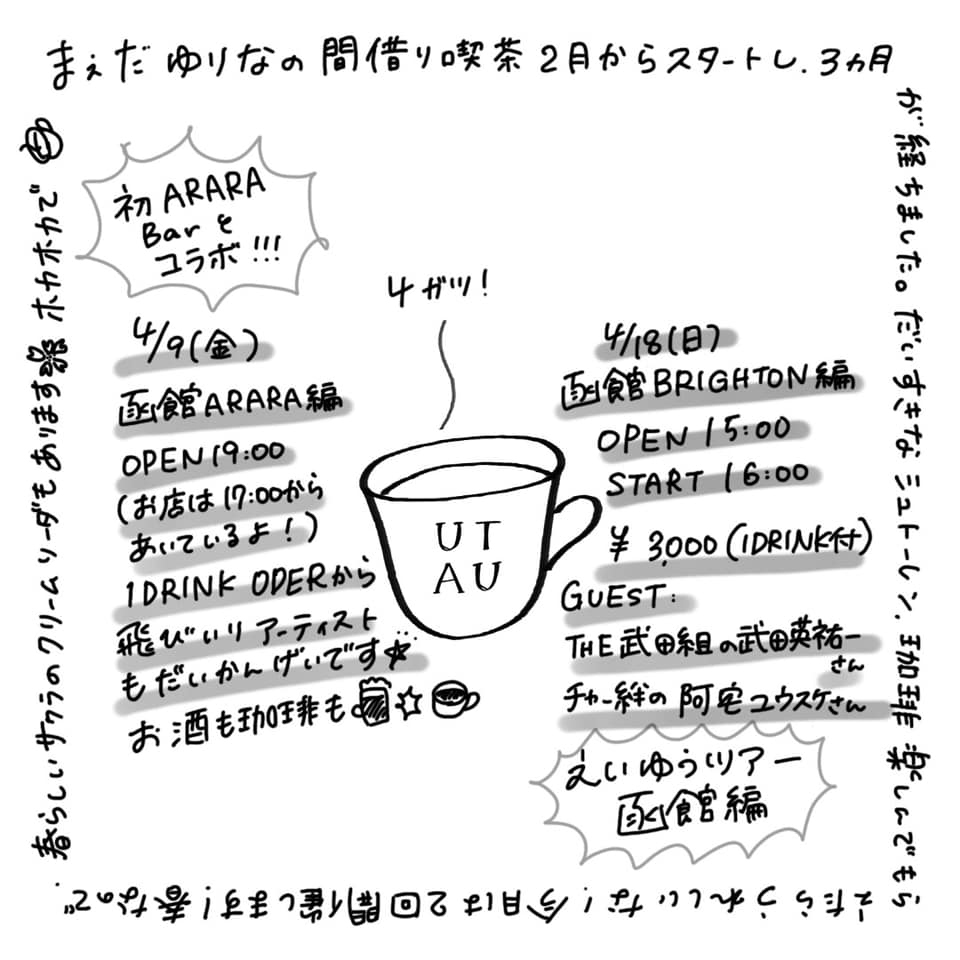 まえだゆりなの間借り喫茶2月からスタートし、3ヵ月
が経ちました。だいすきなシュトーレン、珈琲楽しんでもら
えたらうれしいな!今月は2回開催します!春なので、
春らしいサクラのクリームソーダもあります ホカホカで
初ARARA
Barと
コラボ!!!
4/9(金)
函館ARARA編
OPEN19:00
(お店は17:00から
あいているよ!)
1DRINK ODERから
飛びいりアーティスト
もだいかんげいです☆
お酒も珈琲も☆
4ガツ!
UT
AU
4/18(日)
函館BRIGHTON編
OPEN 15:00
START 16:00
¥3,000(1DRINK付)
GUEST:
THE武田組の武田英祐一
さん
チャー絆の 阿宅ユウスケさん
えいゆうツアー
函館編